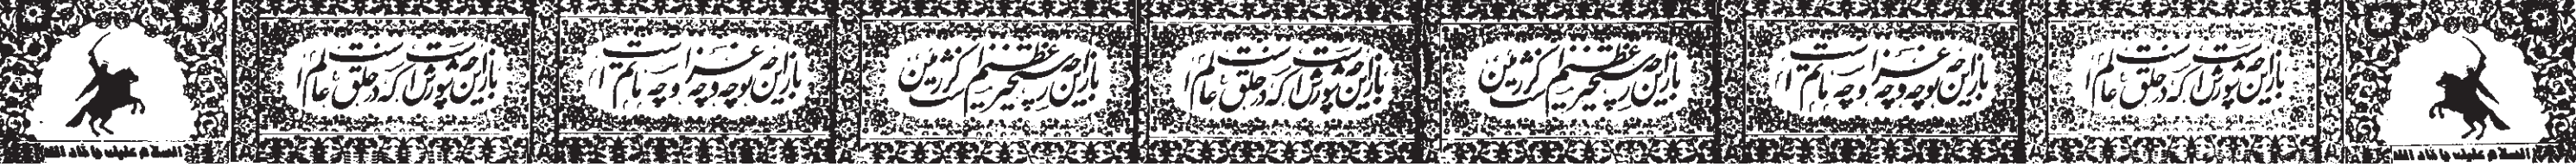 باز این چه شورش است که در خلق عالم است
باز این چه نوحه و چه عزا و چه ماتم است
باز این چه رستخیز عظیم است کز زمین
باز این چه شورش است که در خلق عالم است
باز این چه رستخیز عظیم است کز زمین
باز این چه نوحه و چه عزا و چه ماتم است
باز این چه شورش است که در خلق عالم است
السلام علیک یا ثار الله
السلام علیک یا ثار الله